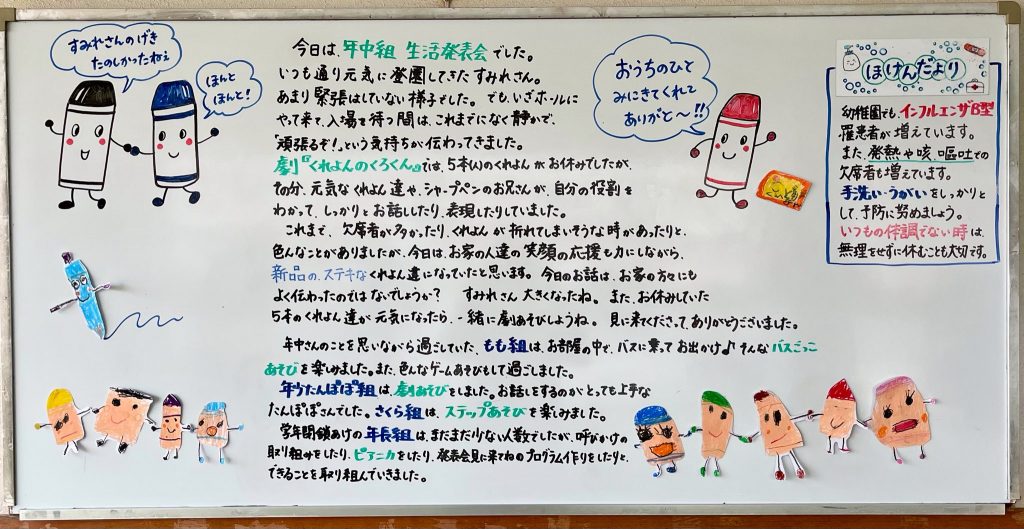 すみれさんのげき
たのしかったねぇ
ほんと
ほんと!
今日は、年中組 生活発表会でした。
いつも通り元気に登園してきたすみれさん。
あまり緊張はしていない様子でした。でも、いざホールに
やって来て、入場を待つ間は、これまでになく静かで、
「頑張るぞ!」という気持ちが伝わってきました。
劇『くれよんのくろくん』では、5本(人)のくれよんがお休みでしたが、
その分、元気なくれよん達や、シャープペンのお兄さんが、自分の役割を
わかって、しっかりとお話ししたり、表現したりしていました。
これまで、欠席者が多かったり、くれよんが折れてしまいそうな時があったりと、
色んなことがありましたが、今日は、お家の人達の笑顔の応援も力にしながら、
新品の、ステキなくれよん達になっていたと思います。今日のお話は、お家の方々にも
よく伝わったのではないでしょうか? すみれさん大きくなったね。また、お休みしていた
5本のくれよん達が元気になったら、一緒に劇あそびしようね。見に来てくださって、ありがとうございました。
年中さんのことを思いながら過ごしていた、もも組は、お部屋の中で、バスに乗ってお出かけ♪そんなバスごっこ
あそびを楽しみました。また、色んなゲームあそびもして過ごしました。
年少たんぽぽ組は、劇あそびをしました。お話しをするのがとっても上手な
たんぽぽさんでした。さくら組は、ステップあそびを楽しみました。
学年閉鎖あけの年長組は、まだまだ少ない人数でしたが、呼びかけの
取り組みをしたり、ピアニカをしたり、発表会見に来てねのプログラム作りをしたりと、
できることを取り組んでいきました。
おうちのひと
みにきてくれて
ありがと〜!!
ほけんだより
幼稚園でも、インフルエンザB型
罹患者が増えています。
また、発熱や咳、嘔吐での
欠席者も増えています。
手洗い・うがいをしっかりと
して、予防に努めましょう。
いつもの体調でない時は、
無理をせずに休むことも大切です。